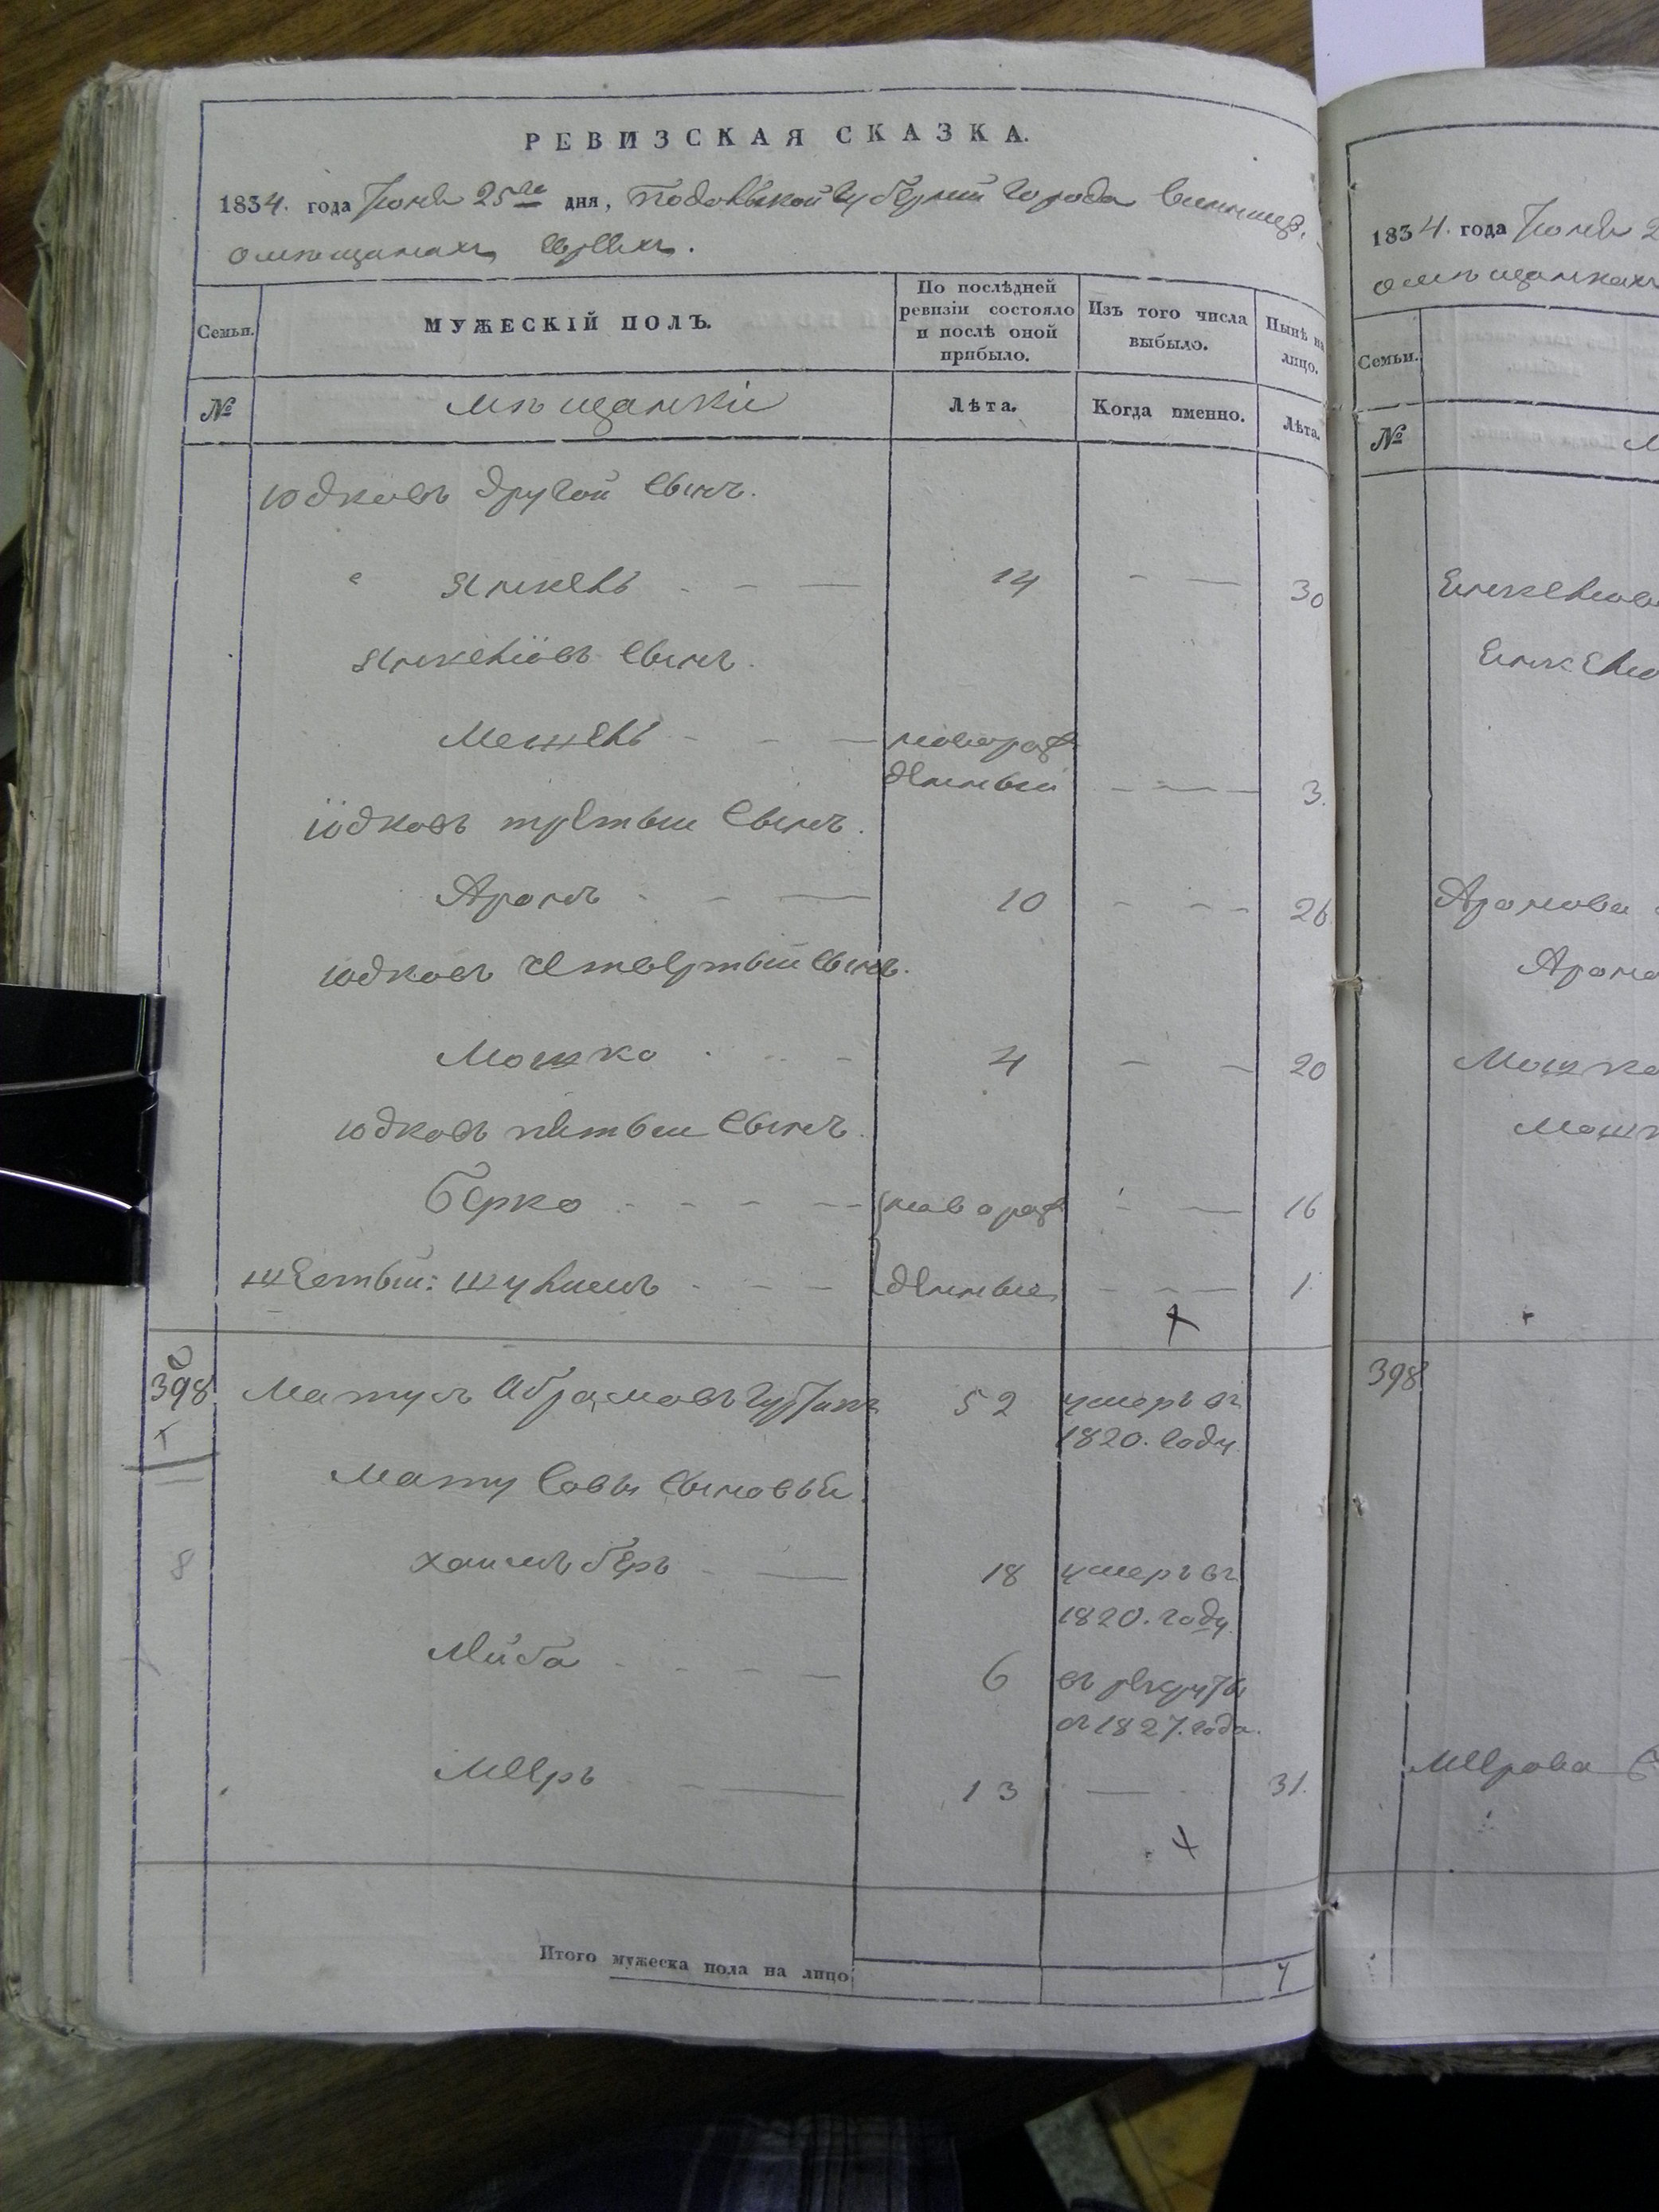 РЕВИЗСКАЯ СКАЗКА.
1834. года Іюня 25го дня, Подольской Губерніи Города Винницы,
о мѣщанахъ Евреяхъ.
Семьи.
МУЖЕСКІЙ ПОЛЪ.
По послѣдней ревизіи состояло и послѣ оной прибыло.
Изъ того числа выбыло.
Нынѣ на лицо.
№
мѣщанскій
Лѣта.
Когда именно.
Лѣта.
Юдковъ другой сынъ.
Янкель 14 30
Янкелiовъ сынъ.
Мошель новорож
денный 3.
Юдковъ третьи сынъ.
Аронъ 10 26
Юдковъ четвертый сынъ.
Мошко 4 20
Юдковъ пятыи сынъ.
Берко новорож 16
шестый: Шулимъ денные 1.
398 Матусъ Абрамовъ 52 умеръ въ
1820. году.
Матусовы сыновьи.
8
Хаимъ беръ 18 умеръ въ
1820. году
Лейба 6 въ рекруты
съ 1827. года.
Меръ 13 31.
Итого мужеска пола на лицо 7
1834. года Іюня 2
о мѣщанкахъ
Семьи.
№
М
Янкелiова
Янкелiо
Аронова
Арона
Мошка
Мошк
398
Меерова